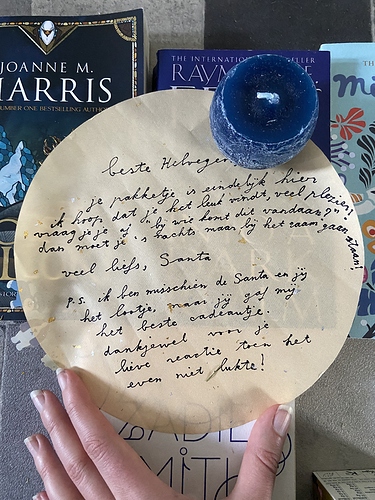 JOANNE M.
HARRIS
NUMBER ONE BESTSELLING AUTHOR
THE INTERNATIONAL
RAYM
beste Hilveger
je pakketje is eindelijk hier
ik hoop dat je het leuk vindt, veel plezier!
vraag je je af "bij wie komt dit vandaan?"
dan moet je 's nachts maar bij het raam gaan staan!
veel liefs, Santa
p.s. ik ben misschien de Santa en jij
het lootje, maar jij gaf mij
het beste cadeautje.
dankjewel voor je
lieve reactie toen het
even niet lukte!
ZADIE
SMITH